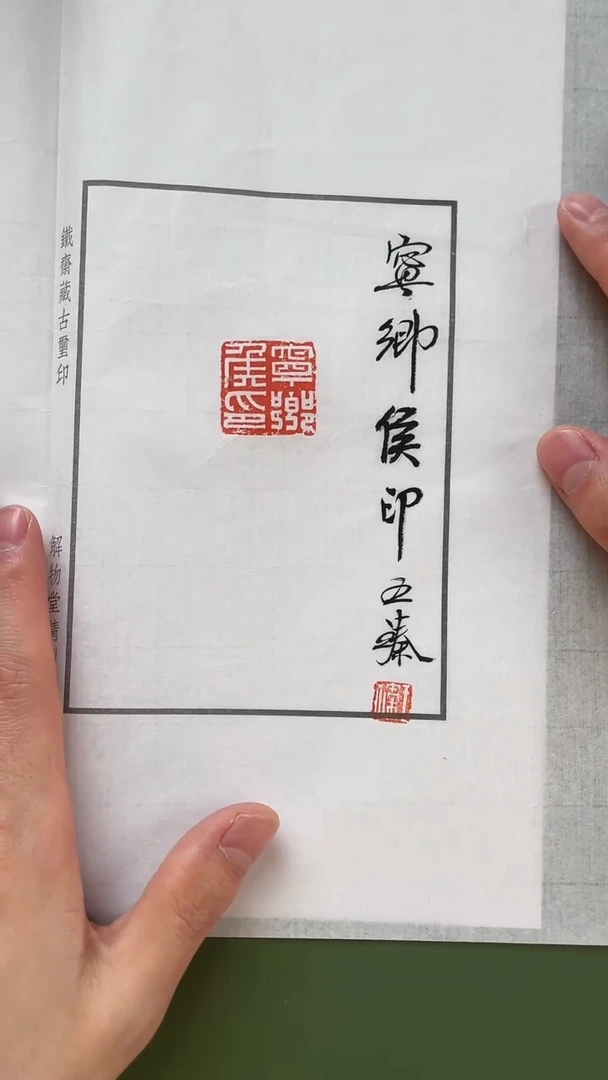 寧鄉侯印
寧鄉侯印
鐵齋藏古璽印
解物堂